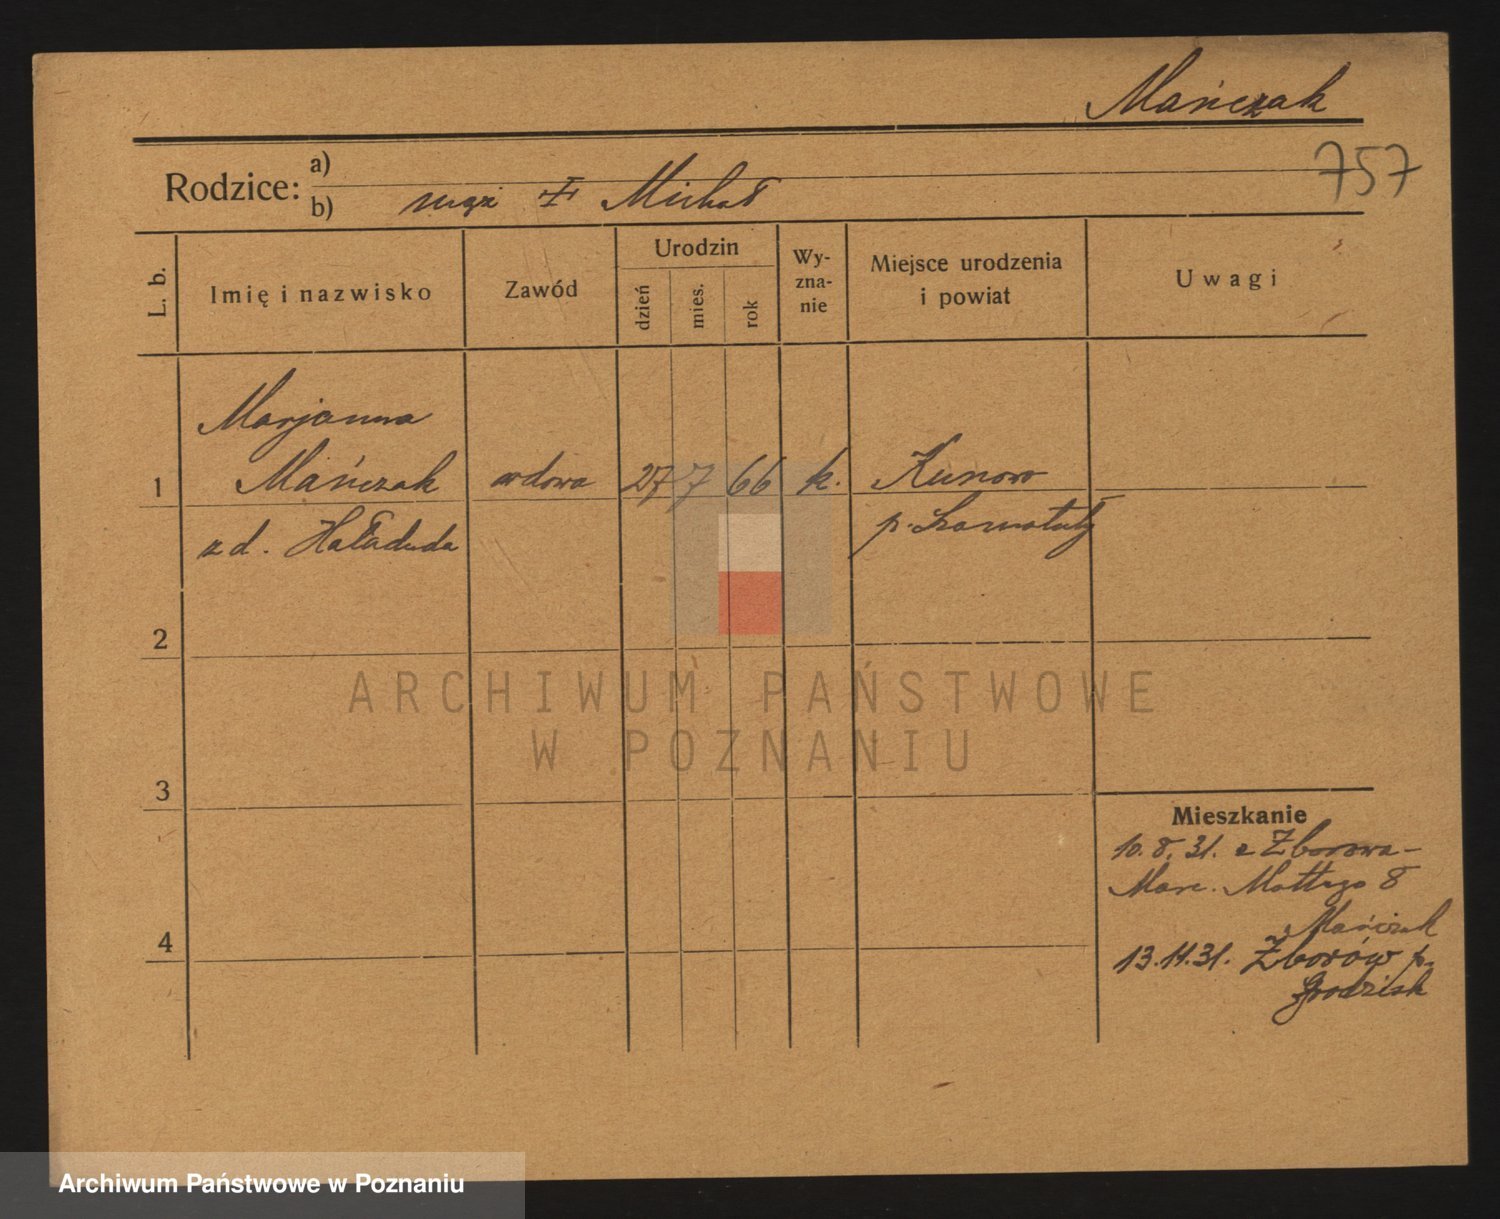 Mańczak
757
Rodzice:
a)
b) mąż Michał
L. b.
Imię i nazwisko
Zawód
Urodzin
dzień
mies.
rok
Wy-
zna-
nie
Miejsce urodzenia
i powiat
Uwagi
Marjanna
1 Mańczak wdowa 27 7 66 k. Kunowo
z d. Haładuda p. Szamotuły
2
ARCHIWUM PAŃSTWOWE
W POZNANIU
3
Mieszkanie
10.8.31. z Zborowa -
Marc. Mottego 8
4
Mańczak
13.11.31. Zborów p.
Grodzisk
Archiwum Państwowe w Poznaniu